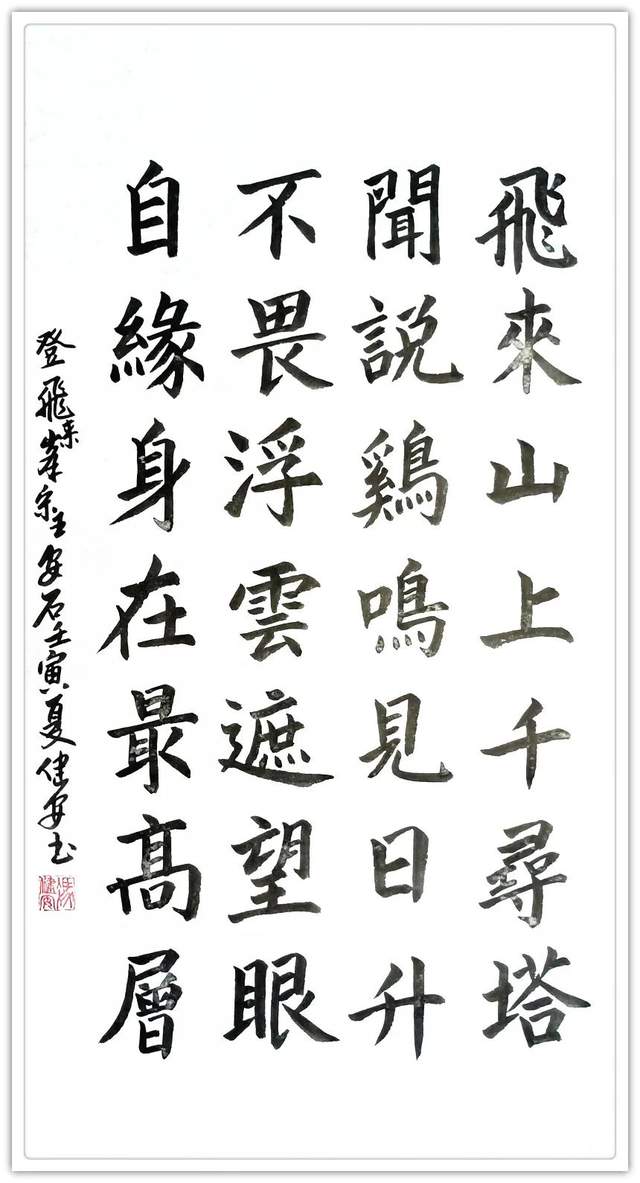 飛來山上千尋塔
聞説鷄鳴見日升
不畏浮雲遮望眼
自緣身在最高層
登飛來峯宋王安石壬寅夏健安书